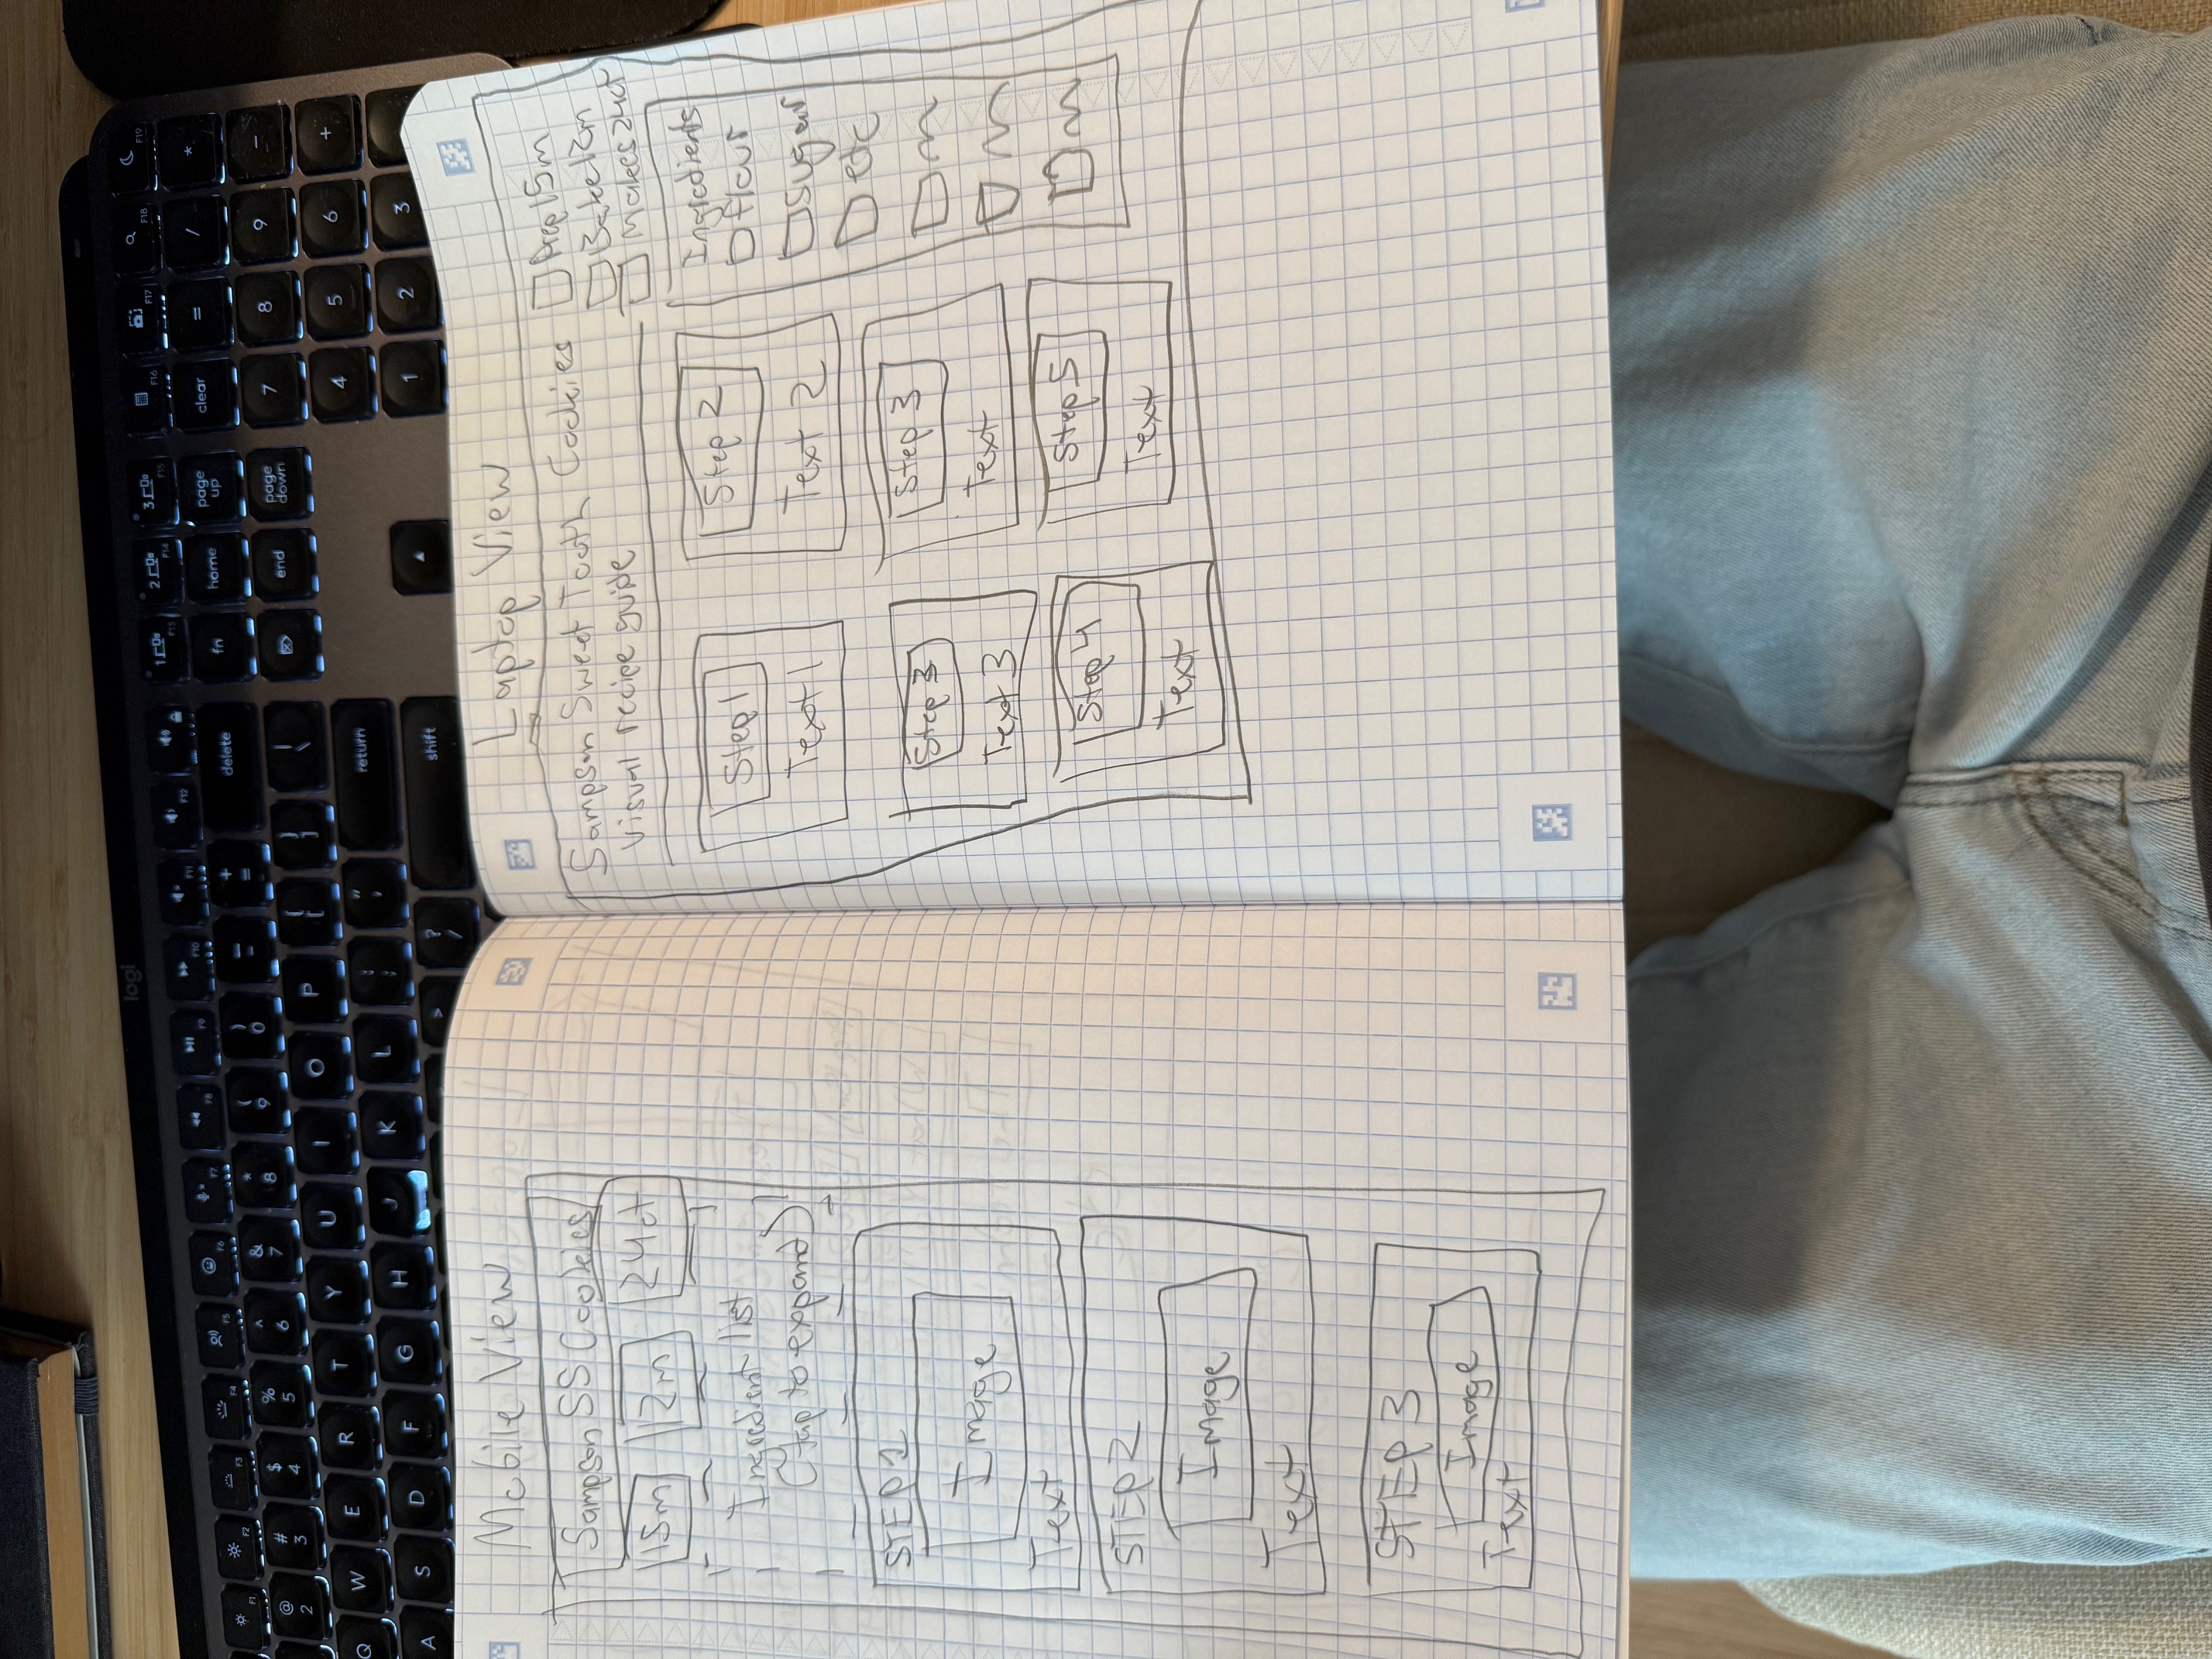 logi
F1 F2 F3 F4 F5 F6 F7 F8 F9 F10 F11 F12 F13 F14 F15 F16 F17 F18 F19
@ 2 # 3 $ 4 % 5 ^ 6 & 7 * 8 ( 9 ) 0 - + = delete fn home page up clear = / *
Q W E R T Y U I O P { [ } ] | \ end page down 7 8 9 -
A S D F G H J K L : ; " ' return 4 5 6 +
> ? / shift 1 2 3
Mobile View
Sampson SS Cookies
15m 12m 24ct
Ingredient list
(tap to expand)
STEP 1
Image
Text
STEP 2
Image
Text
STEP 3
Image
Text
Laptop View
Sampson Sweet Tooth Cookies
Visual recipe guide
Prep 15m
Bake 12m
Makes 24ct
Step 1
Text 1
Step 2
Text 2
Step 3
Text 3
Step 3
Text
Step 4
Text
Step 5
Text
Ingredients
flour
sugar
etc